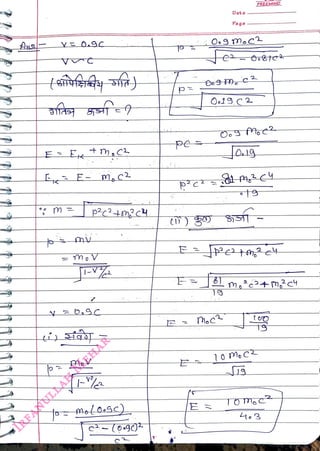 PREMIUM
Date
Page
Ans:- v = 0.9c
v ~ c
(आपेक्षिकीय गति)
गतिज ऊर्जा = ?
E = E_K + m₀c²
E_K = E - m₀c²
∵ m = √(p²c² + m₀²c⁴)
p = mv
= m₀v / √(1-v²/c²)
v = 0.9c
(i) संवेग -
p = m₀v / √(1-v²/c²)
p = m₀(0.9c) / √((c² - (0.9c)²) / c²)
p = 0.9m₀c² / √(c² - 0.81c²)
p = 0.9m₀c² / √(0.19c²)
pc = 0.9m₀c² / √0.19
p²c² = .81 m₀²c⁴ / .19
(ii) कुल ऊर्जा -
E = √(p²c² + m₀²c⁴)
E = √(81/19 m₀²c² + m₀²c⁴)
E = m₀c² √(100/19)
E = 10m₀c² / √19
E = 10m₀c² / 4.3
IRFANULLAH MEHAR